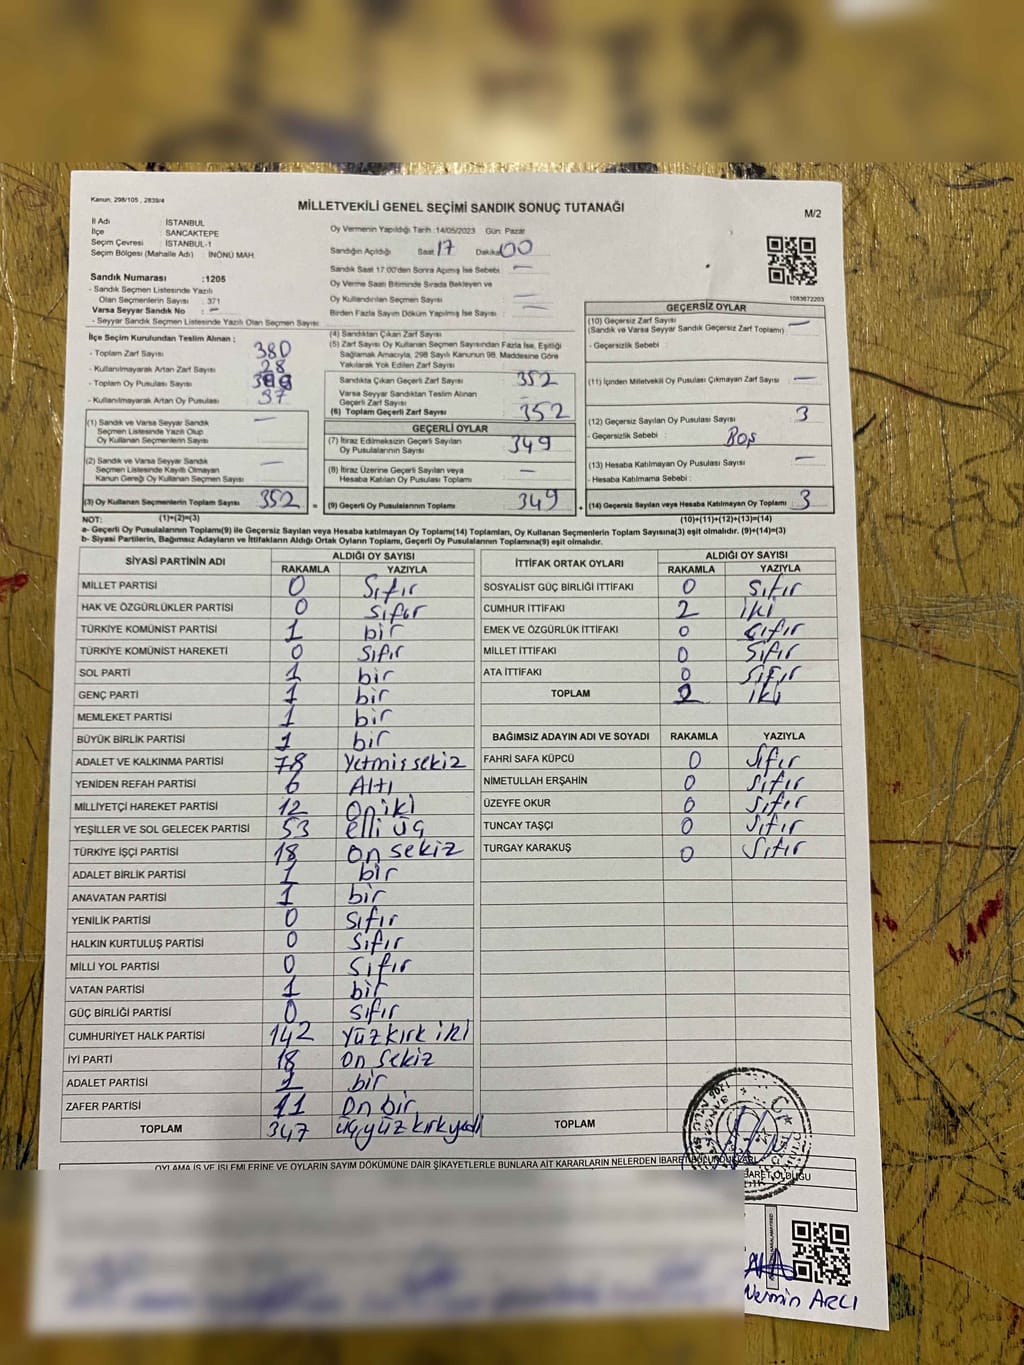 Kanun: 298/105 , 2839/4
MİLLETVEKİLİ GENEL SEÇİMİ SANDIK SONUÇ TUTANAĞI
M/2
İl Adı : İSTANBUL
İlçe : SANCAKTEPE
Seçim Çevresi : İSTANBUL-1
Seçim Bölgesi (Mahalle Adı) : İNÖNÜ MAH.
Sandık Numarası :1205
- Sandık Seçmen Listesinde Yazılı
Olan Seçmenlerin Sayısı : 371
Varsa Seyyar Sandık No : —
- Seyyar Sandık Seçmen Listesinde Yazılı Olan Seçmen Sayısı:
Oy Vermenin Yapıldığı Tarih :14/05/2023 Gün: Pazar
Sandığın Açıldığı Saat 17 Dakika 00
Sandık Saat 17:00'den Sonra Açılmış İse Sebebi —
Oy Verme Saati Bitiminde Sırada Bekleyen ve
Oy Kullandırılan Seçmen Sayısı : —
Birden Fazla Sayım Döküm Yapılmış İse Sayısı : —
1083672203
İlçe Seçim Kurulundan Teslim Alınan ;
- Toplam Zarf Sayısı : 380
- Kullanılmayarak Artan Zarf Sayısı : 28
- Toplam Oy Pusulası Sayısı :
- Kullanılmayarak Artan Oy Pusulası : 37
(1) Sandık ve Varsa Seyyar Sandık —
Seçmen Listesinde Yazılı Olup
Oy Kullanan Seçmenlerin Sayısı
(2) Sandık ve Varsa Seyyar Sandık —
Seçmen Listesinde Kayıtlı Olmayan
Kanun Gereği Oy Kullanan Seçmen Sayısı
(3) Oy Kullanan Seçmenlerin Toplam Sayısı 352 =
(4) Sandıktan Çıkan Zarf Sayısı
(5) Zarf Sayısı Oy Kullanan Seçmen Sayısından Fazla İse, Eşitliği
Sağlamak Amacıyla, 298 Sayılı Kanunun 98. Maddesine Göre
Yakılarak Yok Edilen Zarf Sayısı
Sandıkta Çıkan Geçerli Zarf Sayısı 352
Varsa Seyyar Sandıktan Teslim Alınan
Geçerli Zarf Sayısı —
(6) Toplam Geçerli Zarf Sayısı 352
GEÇERLİ OYLAR
(7) İtiraz Edilmeksizin Geçerli Sayılan
Oy Pusulalarının Sayısı 349
(8) İtiraz Üzerine Geçerli Sayılan veya —
Hesaba Katılan Oy Pusulası Toplamı
(9) Geçerli Oy Pusulalarının Toplamı 349 +
GEÇERSİZ OYLAR
(10) Geçersiz Zarf Sayısı —
(Sandık ve Varsa Seyyar Sandık Geçersiz Zarf Toplamı)
- Geçersizlik Sebebi :
(11) İçinden Milletvekili Oy Pusulası Çıkmayan Zarf Sayısı —
(12) Geçersiz Sayılan Oy Pusulası Sayısı 3
- Geçersizlik Sebebi : Boş
(13) Hesaba Katılmayan Oy Pusulası Sayısı —
- Hesaba Katılmama Sebebi :
(14) Geçersiz Sayılan veya Hesaba Katılmayan Oy Toplamı 3
NOT: (1)+(2)=(3) (10)+(11)+(12)+(13)=(14)
a- Geçerli Oy Pusulalarının Toplamı(9) ile Geçersiz Sayılan veya Hesaba katılmayan Oy Toplamı(14) Toplamları, Oy Kullanan Seçmenlerin Toplam Sayısına(3) eşit olmalıdır. (9)+(14)=(3)
b- Siyasi Partilerin, Bağımsız Adayların ve İttifakların Aldığı Ortak Oyların Toplamı, Geçerli Oy Pusulalarının Toplamına(9) eşit olmalıdır.
SİYASİ PARTİNİN ADI ALDIĞI OY SAYISI
RAKAMLA YAZIYLA
MİLLET PARTİSİ 0 Sıfır
HAK VE ÖZGÜRLÜKLER PARTİSİ 0 sıfır
TÜRKİYE KOMÜNİST PARTİSİ 1 bir
TÜRKİYE KOMÜNİST HAREKETİ 0 sıfır
SOL PARTİ 1 bir
GENÇ PARTİ 1 bir
MEMLEKET PARTİSİ 1 bir
BÜYÜK BİRLİK PARTİSİ 1 bir
ADALET VE KALKINMA PARTİSİ 78 Yetmiş sekiz
YENİDEN REFAH PARTİSİ 6 Altı
MİLLİYETÇİ HAREKET PARTİSİ 12 on iki
YEŞİLLER VE SOL GELECEK PARTİSİ 53 elli üç
TÜRKİYE İŞÇİ PARTİSİ 18 on sekiz
ADALET BİRLİK PARTİSİ 1 bir
ANAVATAN PARTİSİ 1 bir
YENİLİK PARTİSİ 0 sıfır
HALKIN KURTULUŞ PARTİSİ 0 sıfır
MİLLİ YOL PARTİSİ 0 sıfır
VATAN PARTİSİ 1 bir
GÜÇ BİRLİĞİ PARTİSİ 0 sıfır
CUMHURİYET HALK PARTİSİ 142 Yüz kırk iki
İYİ PARTİ 18 on sekiz
ADALET PARTİSİ 1 bir
ZAFER PARTİSİ 11 on bir
TOPLAM 347 üçyüz kırkyedi
İTTİFAK ORTAK OYLARI ALDIĞI OY SAYISI
RAKAMLA YAZIYLA
SOSYALİST GÜÇ BİRLİĞİ İTTİFAKI 0 sıfır
CUMHUR İTTİFAKI 2 iki
EMEK VE ÖZGÜRLÜK İTTİFAKI 0 sıfır
MİLLET İTTİFAKI 0 sıfır
ATA İTTİFAKI 0 sıfır
TOPLAM 2 iki
BAĞIMSIZ ADAYIN ADI VE SOYADI RAKAMLA YAZIYLA
FAHRİ SAFA KÜPCÜ 0 sıfır
NİMETULLAH ERŞAHİN 0 sıfır
ÜZEYFE OKUR 0 sıfır
TUNCAY TAŞÇI 0 sıfır
TURGAY KARAKUŞ 0 sıfır
TOPLAM
OYLAMA İŞ VE İŞLEMLERİNE VE OYLARIN SAYIM DÖKÜMÜNE DAİR ŞİKAYETLERLE BUNLARA AİT KARARLARIN NELERDEN İBARET
BARET OLDUĞU
Nermin ARCI